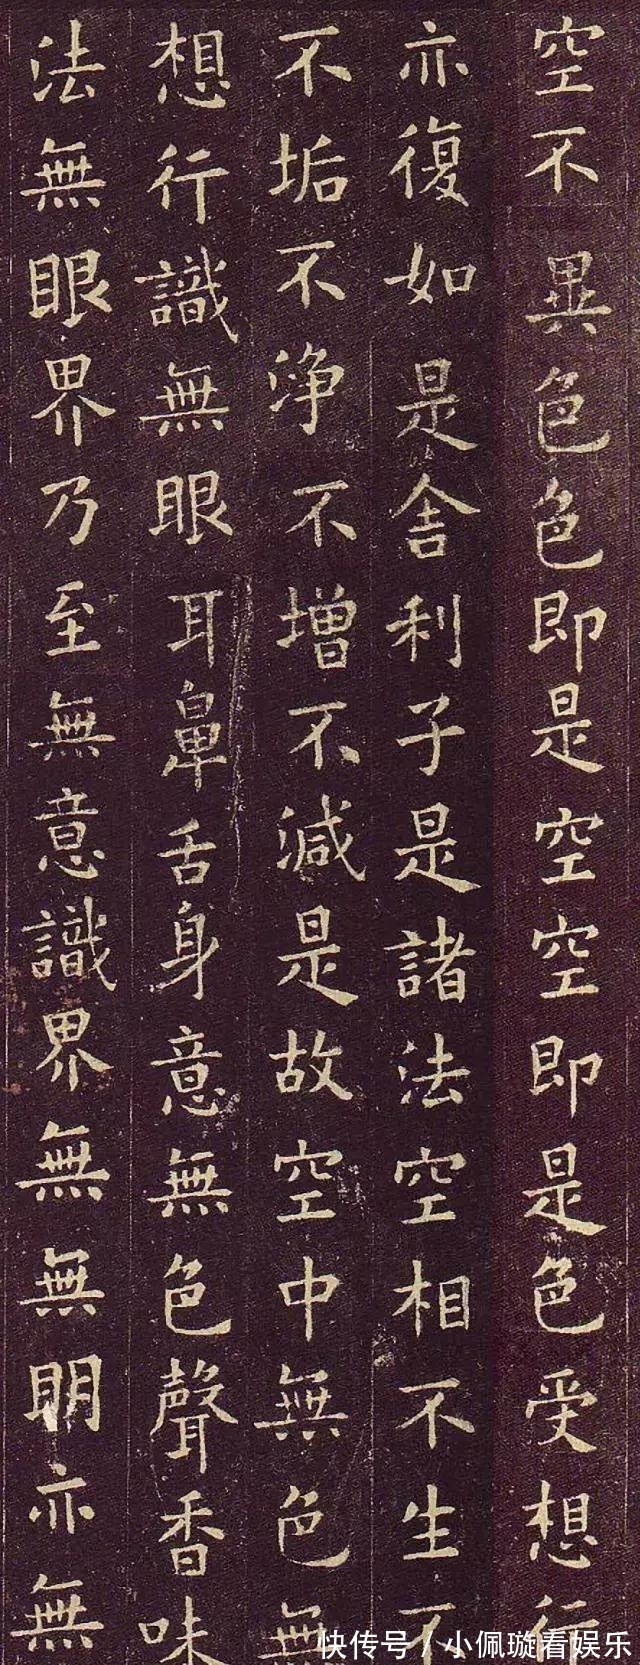 空不異色色即是空空即是色受想行
亦復如是舍利子是諸法空相不生不
不垢不淨不增不減是故空中無色無
想行識無眼耳鼻舌身意無色聲香味
法無眼界乃至無意識界無無明亦無
快传号/小佩璇看娱乐